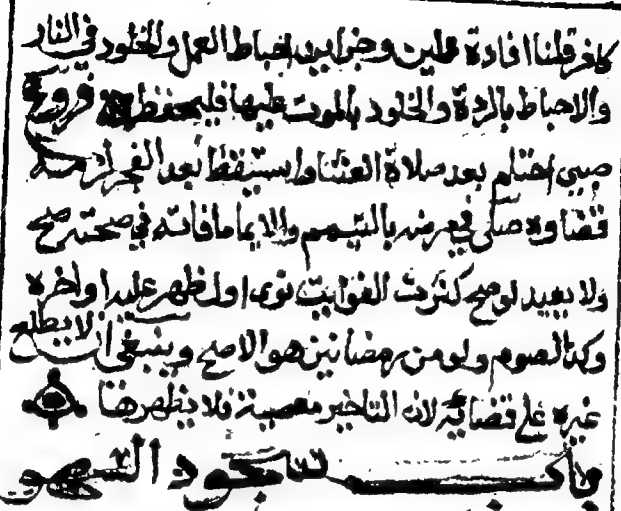 كافر قلنا افادة عملين وجزايين احباط العمل والخلود في النار
والاحباط بالردة والخلود بالموت عليها فليحفظ فروع
صبي احتلم بعد صلاة العشا واستيقظ بعد الفجر لزمه
قضاوها صلى في مرضه بالتيمم والايما ما فاته في صحته صح
ولا يعيد لو صح كثرت الفوايت نوى اول ظهر عليه او اخره
وكذا الصوم ولو من رمضانين هو الاصح وينبغي ان لا يطلع
غيره على قضايه لان التاخير معصية فلا يظهرها
باب سجود السهو